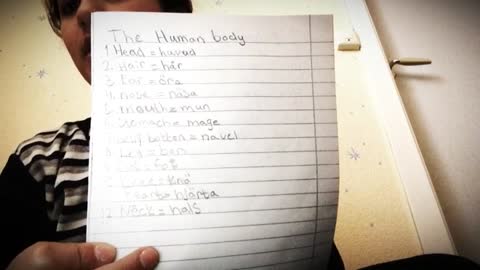 The Human body
1. Head = huvud
2. Hair = hår
3. Ear = öra
4. Nose = näsa
5. mouth = mun
Stomach = mage
botton = navel
Leg = ben
= fot
= knä
Heart = hjärta
12. Neck = hals